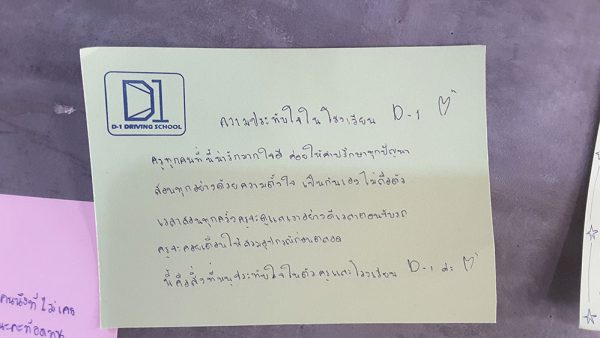 D-1 DRIVING SCHOOL
ความประทับใจใน โรงเรียน D-1
ครูทุกคนที่นี่น่ารักมากใจดี คอยให้คำปรึกษาทุกปัญหา
สอนทุกอย่างด้วยความตั้งใจ เป็นกันเอง ไม่ถือตัว
เวลาสอนทุกครั้งครูจะดูแลเราอย่างดีเวลาตอนขับรถ
ครูจะคอยเตือนให้สวมอุปกรณ์ก่อนตลอด
นี่คือสิ่งที่หนูประทับใจในตัวครูและโรงเรียน D-1 ค่ะ
คนนึงที่ไม่เคย